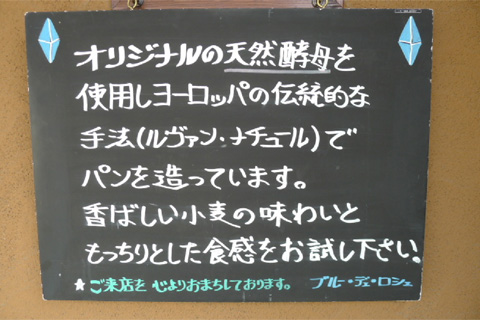 オリジナルの天然酵母を
使用しヨーロッパの伝統的な
手法(ルヴァン・ナチュール)で
パンを造っています。
香ばしい小麦の味わいと
もっちりとした食感をお試し下さい。
★ご来店を心よりおまちしております。 ブルー・デュ・ロシェ